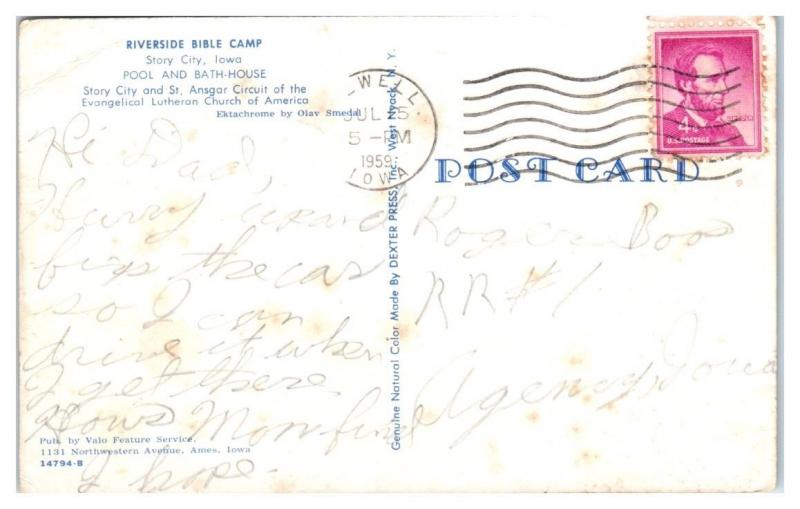 RIVERSIDE BIBLE CAMP
Story City, Iowa
POOL AND BATH-HOUSE
Story City and St. Ansgar Circuit of the
Evangelical Lutheran Church of America
Ektachrome by Olav Smedal
WELL
JUL 25
5 - PM
1959
IOWA
4¢
U.S. POSTAGE
POST CARD
Hi Dad,
Hurry and
fix the car
so I can
drive it when
I get there
Hows Mom fine
I hope.
Genuine Natural Color Made By DEXTER PRESS, Inc., West Nyack, N. Y.
Roger Boos
RR #1
Agency, Iowa
Pub. by Valo Feature Service,
1131 Northwestern Avenue, Ames, Iowa
14794-B